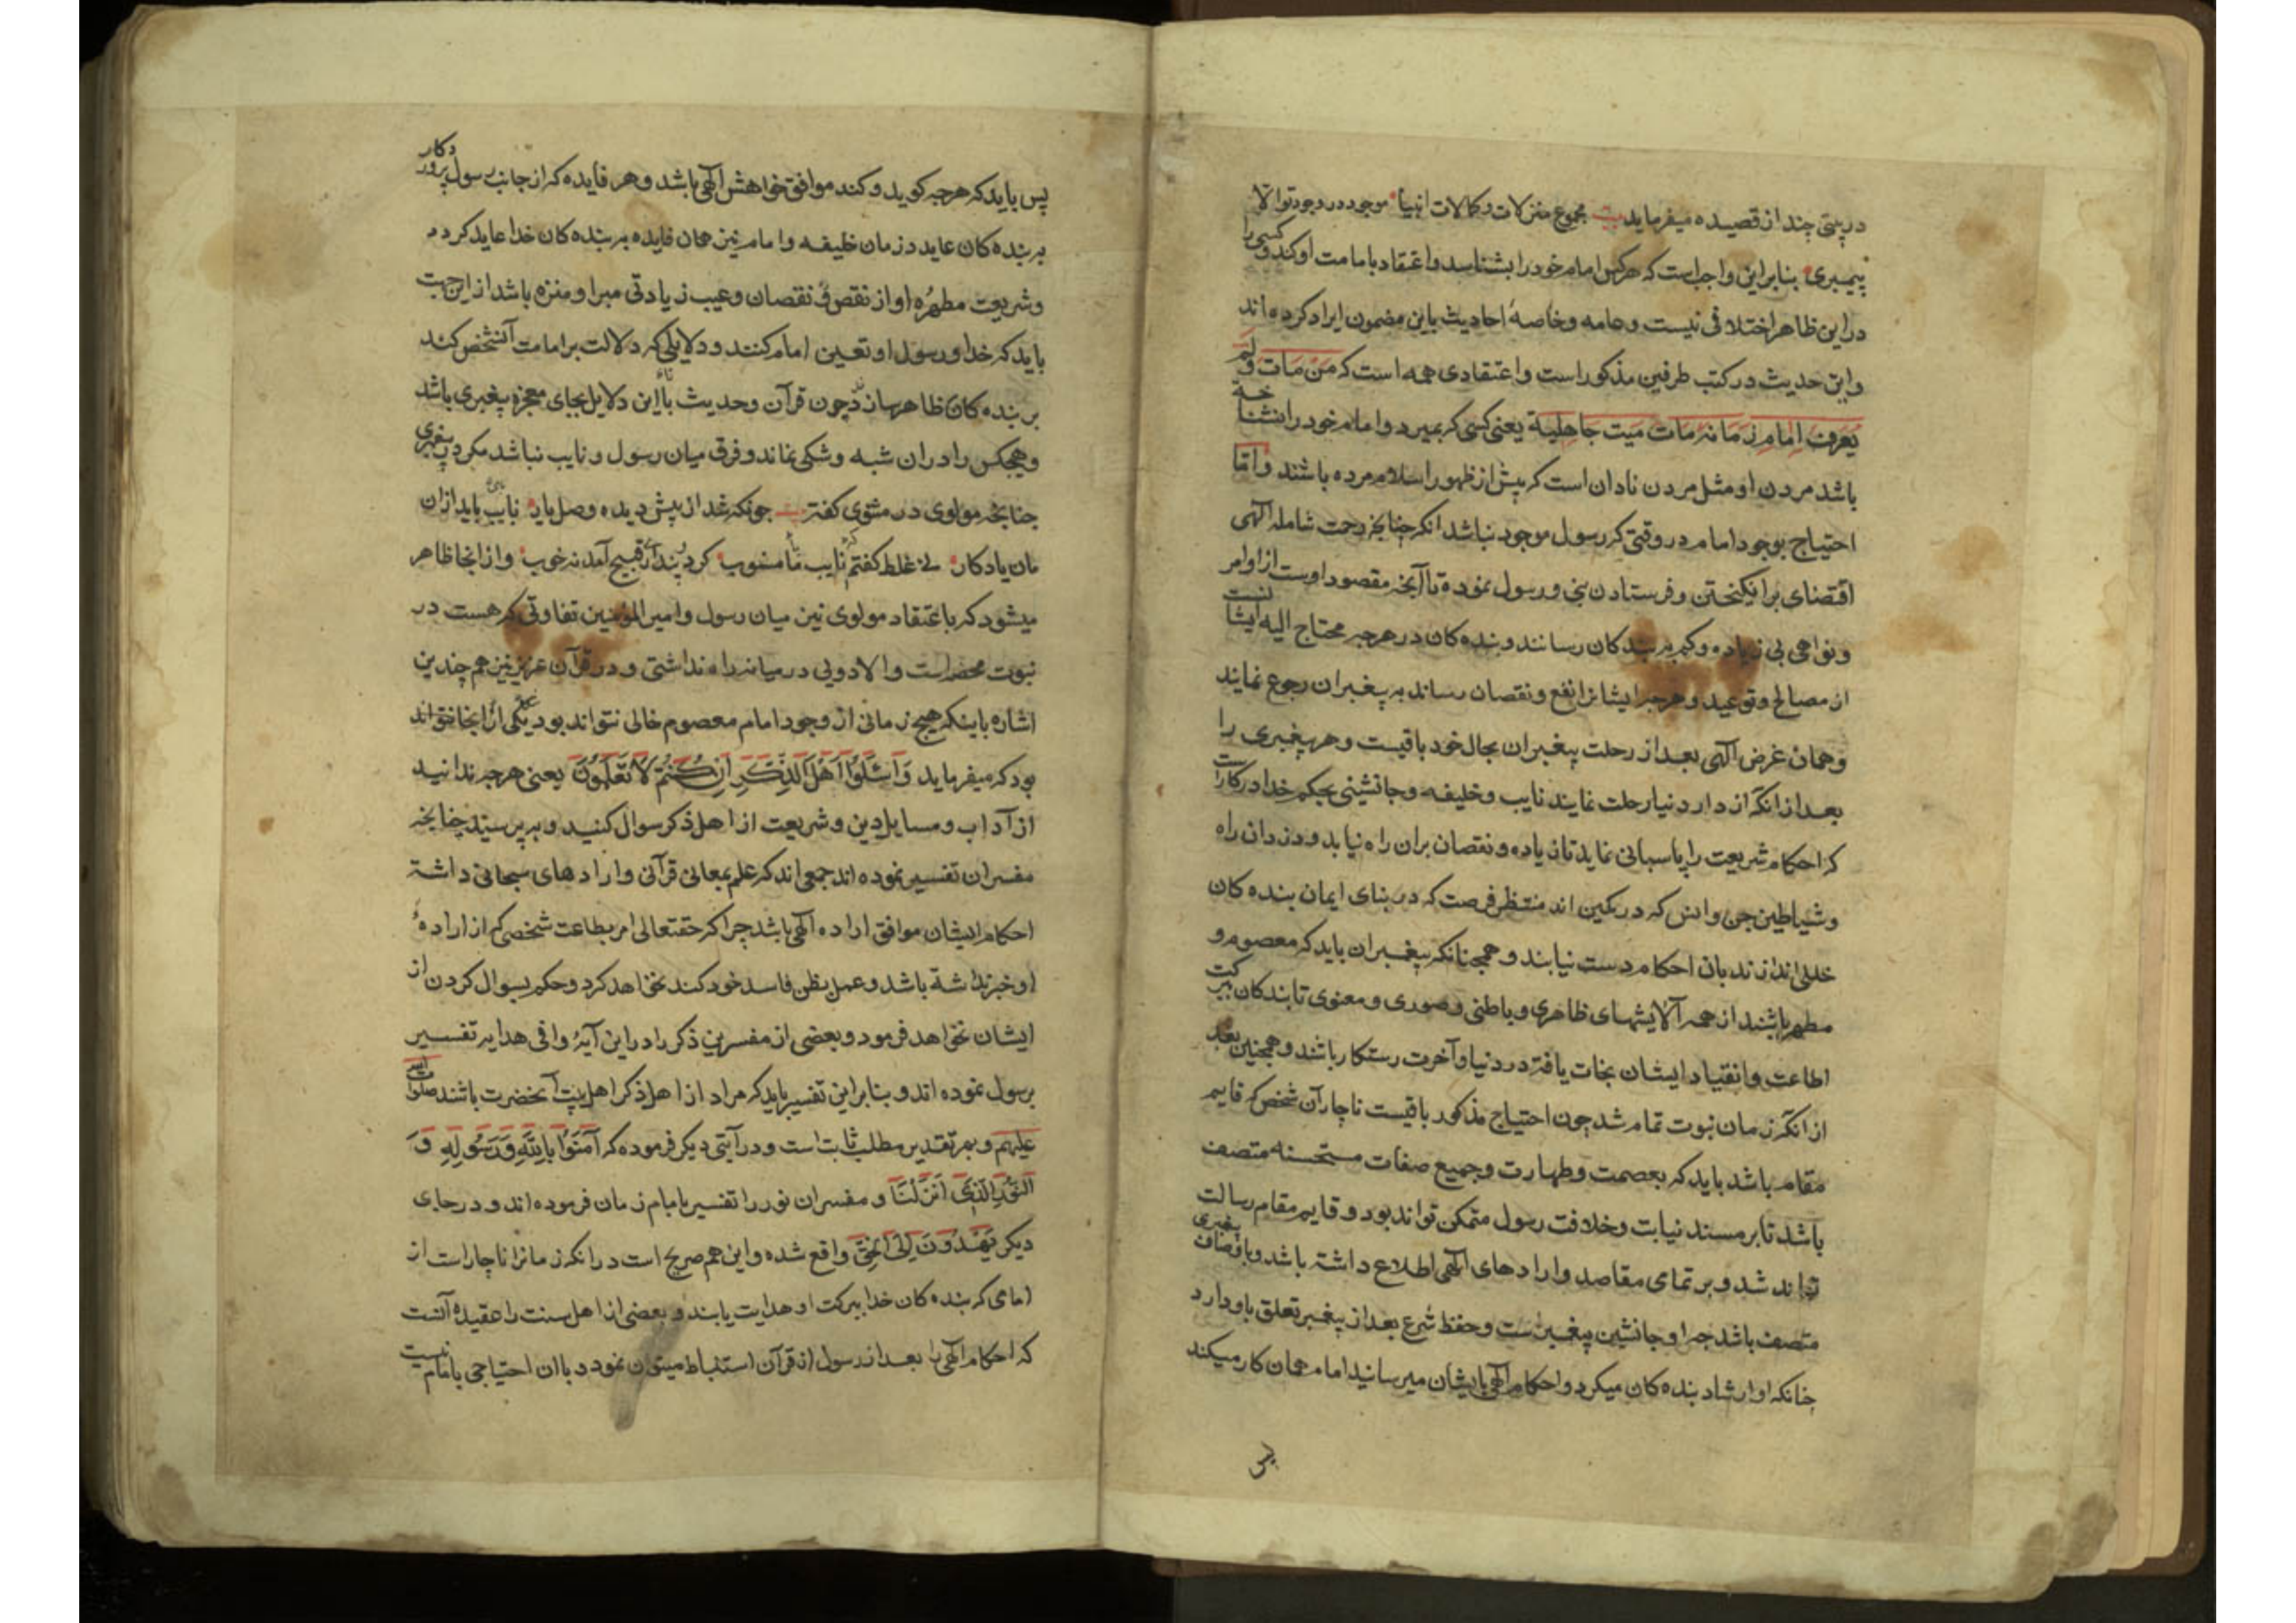 در بیتی چند از قصیده میفرماید بیت مجموع منزلات و کمالات انبیا موجود در وجود تو الا
پیمبری بنابراین واجب است که هرکس امام خود را بشناسد و اعتقاد بامامت او کند و کسی را
در این ظاهرا اختلافی نیست و عامه و خاصه احادیث باین مضمون ایراد کرده اند
و این حدیث در کتب طرفین مذکور است و اعتقادی همه است که من مات و لم
یعرف امام زمانه مات میت جاهلیة یعنی کسی که بمیرد و امام خود را نشناخته
باشد مردن او مثل مردن نادان است که پیش از ظهور اسلام مرده باشند و اما
احتیاج بوجود امام در وقتی که رسول موجود نباشد انکه چنانچه رحمت شامله الهی
اقتضای برانیکختن و فرستادن نبی و رسول نموده تا آنچه مقصود اوست از اوامر
و نواهی بی زیاده و کم به بندکان رسانند و بنده کان در هرچه محتاج الیه ایشانست
از مصالح و توعید و هرچه ایشانرا نفع و نقصان رساند به پیغمبران رجوع نمایند
و همان غرض الهی بعد از رحلت پیغمبران بحال خود باقیست و هر پیغمبری را
بعد از انکه از دار دنیا رحلت نمایند نایب و خلیفه و جانشینی بحکم خدا در کار است
که احکام شریعت را پاسبانی نماید تا زیاده و نقصان بران راه نیابد و دزدان راه
و شیاطین جن و انس که در کمین اند منتظر فرصت که در بنای ایمان بنده کان
خللی اندازند بان احکام دست نیابند و همچنانکه پیغمبران باید که معصوم و
مطهر باشند از همه آلایشهای ظاهری و باطنی و صوری و معنوی تا بندکان ببرکت
اطاعت و انقیاد ایشان نجات یافته در دنیا و آخرت رستکار باشند و همچنین بعد
از انکه زمان نبوت تمام شد چون احتیاج مذکور باقیست ناچار آن شخص که قایم
مقام باشد باید که بعصمت و طهارت و جمیع صفات مستحسنه متصف
باشد تا بر مسند نیابت و خلافت رسول متمکن تواند بود و قایم مقام رسالت
تواند شد و بر تمامی مقاصد و ارادهای الهی اطلاع داشته باشد و باوصاف پیغمبری
متصف باشد چه او جانشین پیغمبرست و حفظ شرع بعد از پیغمبر تعلق باو دارد
چنانکه او ارشاد بنده کان میکرد و احکام الهی بایشان میرسانید امام همان کار میکند
پس
پس باید که هرچه کوید و کند موافق خواهش الهی باشد و هر فایده که از جانب رسول پروردکار
به بنده کان عاید در زمان خلیفه و امام نیز همان فایده به بنده کان خدا عاید کردد
و شریعت مطهره او از نقص و نقصان و عیب زیادتی مبرا و منزه باشد از این جهت
باید که خدا و رسول او تعیین امام کنند و دلایلی که دلالت بر امامت آنشخص کند
بر بنده کان ظاهر سازد چون قرآن و حدیث تا این دلایل بجای معجزه پیغمبری باشد
و هیچکس را در ان شبه و شکی نماند و فرق میان رسول و نایب نباشد مکر در پیغمبری
چنانچه مولوی در مثنوی کفته بیت چونکه شد از پیش دیده وصل یار نایبی باید ازان
مان یادکار نی غلط کفتم که نایب با منسوب کر دو پنداری قبیح آمد نه خوب و از انجا ظاهر
میشود که باعتقاد مولوی نیز میان رسول و امیر المؤمنین تفاوتی که هست در
نبوت محض است والا دویی در میانه راه نداشتی و در قرآن عزیز نیز هم چندین
اشاره باینکه هیچ زمانی از وجود امام معصوم خالی نتواند بود یکی از انجا تواند
بود که میفرماید وَاسْئَلُوا اَهْلَ الذِّكْرِ اِنْ كُنْتُمْ لَا تَعْلَمُونَ یعنی هرچه ندانید
از آداب و مسایل دین و شریعت از اهل ذکر سوال کنید و به پرسید چنانچه
مفسران تفسیر نموده اند جمعی اند که علم بمعانی قرآنی و ارادهای سبحانی داشته
احکام ایشان موافق اراده الهی باشد چرا که حقتعالی امر بطاعت شخصی که از اراده
او خبر نداشته باشد و عمل بظن فاسد خود کند نخواهد کرد و حکم بسوال کردن از
ایشان نخواهد فرمود و بعضی از مفسرین ذکر را در این آیه وافی هدایه تفسیر
برسول نموده اند و بنابراین تفسیر باید که مراد از اهل ذکر اهل بیت آنحضرت باشند صلوات الله
علیهم و بهر تقدیر مطلب ثابت است و در آیتی دیکر فرموده که آمَنُوا بِاللّٰهِ وَرَسُولِهِ وَ
النُّورِ الَّذِي اَنْزَلْنَا و مفسران نور را تفسیر بامام زمان فرموده اند و در جای
دیکر يَهْدُونَ اِلَى الْحَقِّ واقع شده و این هم صریح است در انکه زمانرا ناچار است از
امامی که بنده کان خدا ببرکت او هدایت یابند و بعضی از اهل سنت را عقیده آنست
که احکام الهی را بعد از رسول از قرآن استنباط میتوان نمود و با ان احتیاجی بامام نیست